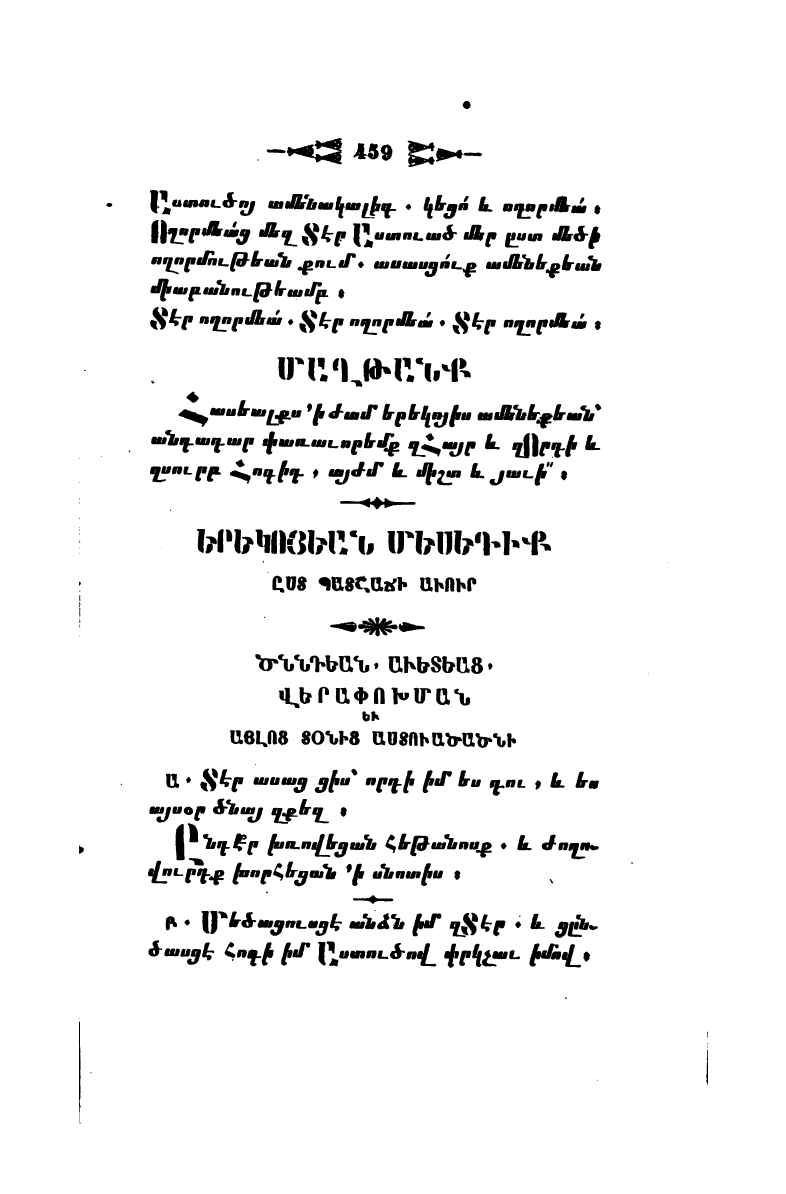 459
Աստուծոյ ամենակալիդ . կեցո՛ և ողորմեա՛ ։
Ողորմեա՛ց մեզ Տէր Աստուած մեր ըստ մեծի
ողորմութեան քում . ասասցո՛ւք ամենեքեան
միաբանութեամբ ։
Տէր ողորմեա՛ . Տէր ողորմեա՛ . Տէր ողորմեա՛ ։
ՄԱՂԹԱՆՔ
Հասեալքս ՚ի ժամ երեկոյիս ամենեքեան՝
անդադար փառաւորեմք զՀայր և զՈրդի և
զսուրբ Հոգիդ , այժմ և միշտ և յաւի՟ ։
ԵՐԵԿՈՅԵԱՆ ՄԵՍԵԴԻՔ
ԸՍՏ ՊԱՏՇԱՃԻ ԱՒՈՒՐ
ԾՆՆԴԵԱՆ, ԱՒԵՏԵԱՑ,
ՎԵՐԱՓՈԽՄԱՆ
ԵՒ
ԱՅԼՈՑ ՏՕՆԻՑ ԱՍՏՈՒԱԾԱԾՆԻ
Ա . Տէր ասաց ցիս՝ որդի իմ ես դու , և ես
այսօր ծնայ զքեզ ։
Ընդէ՞ր խռովեցան հեթանոսք . և ժողո-
վուրդք խորհեցան ՚ի սնոտիս ։
Բ . Մեծացուսցէ անձն իմ զՏէր . և ցըն-
ծասցէ հոգի իմ Աստուծով փրկչաւ իմով ։